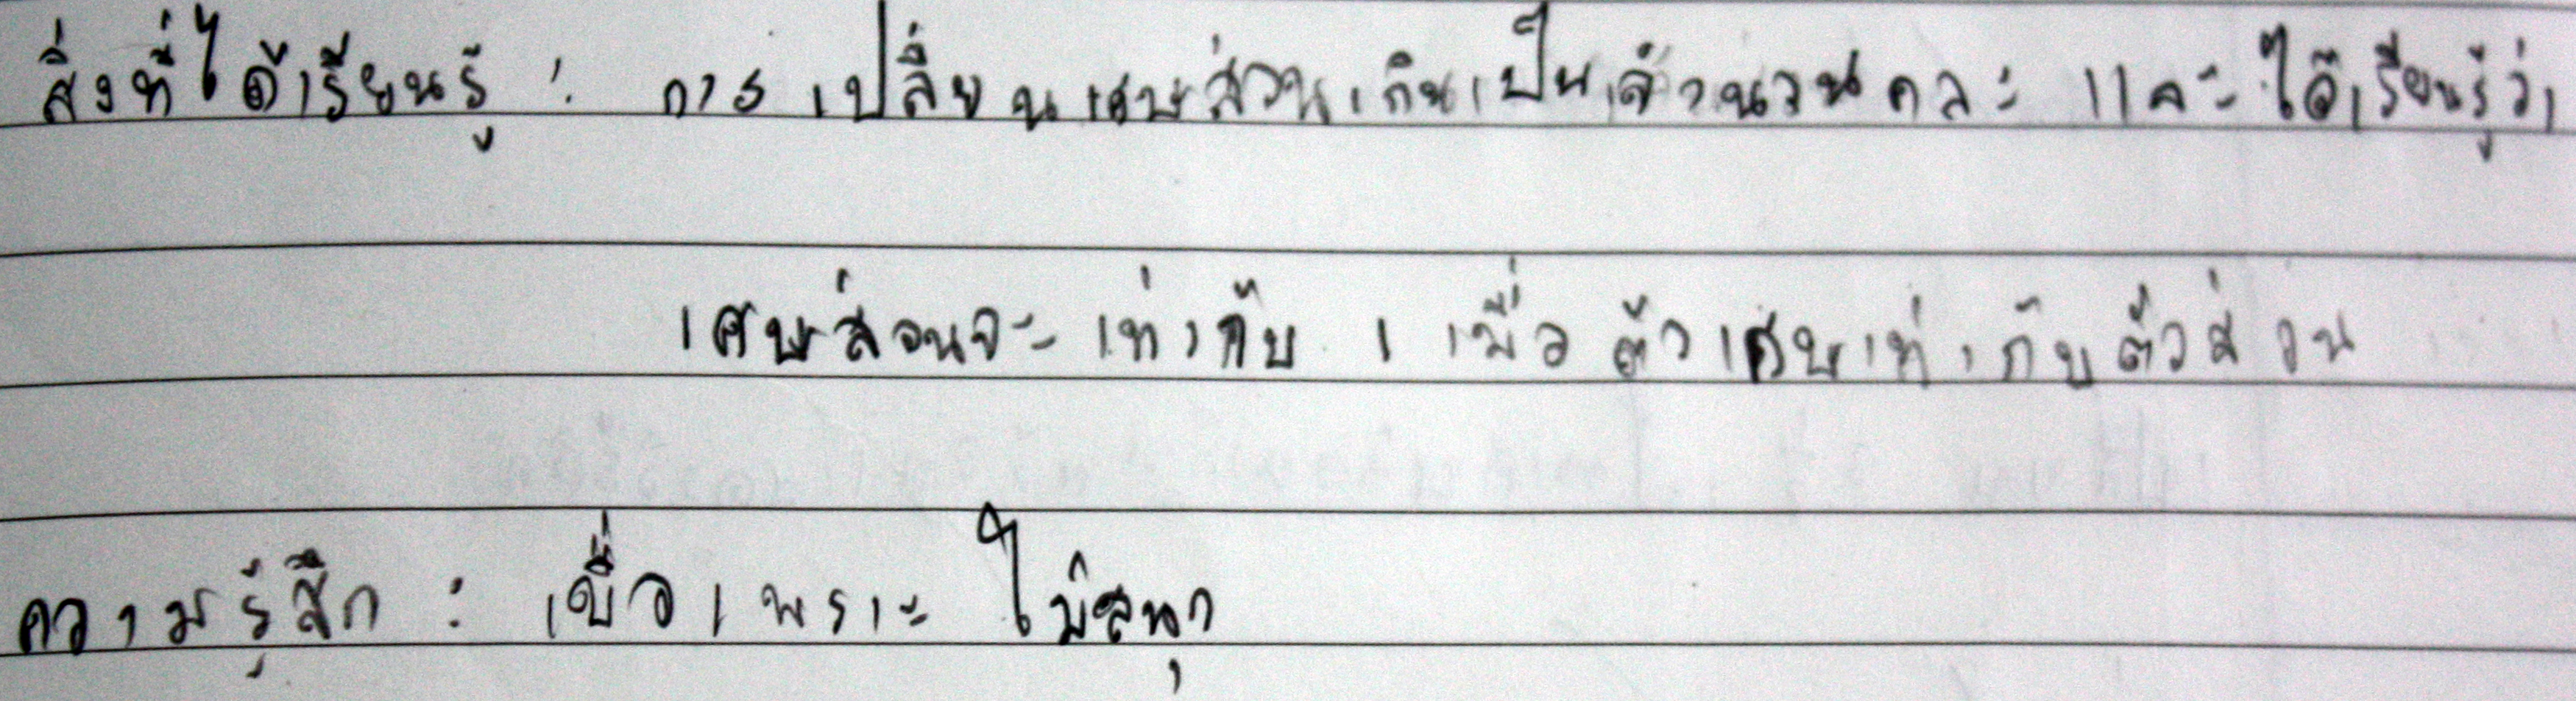 สิ่งที่ได้เรียนรู้ : การเปลี่ยนเศษส่วนเกินเป็นจำนวนคละ และได้เรียนรู้ว่า
เศษส่วนจะเท่ากับ 1 เมื่อตัวเศษเท่ากับตัวส่วน
ความรู้สึก : เบื่อเพราะไม่สนุก